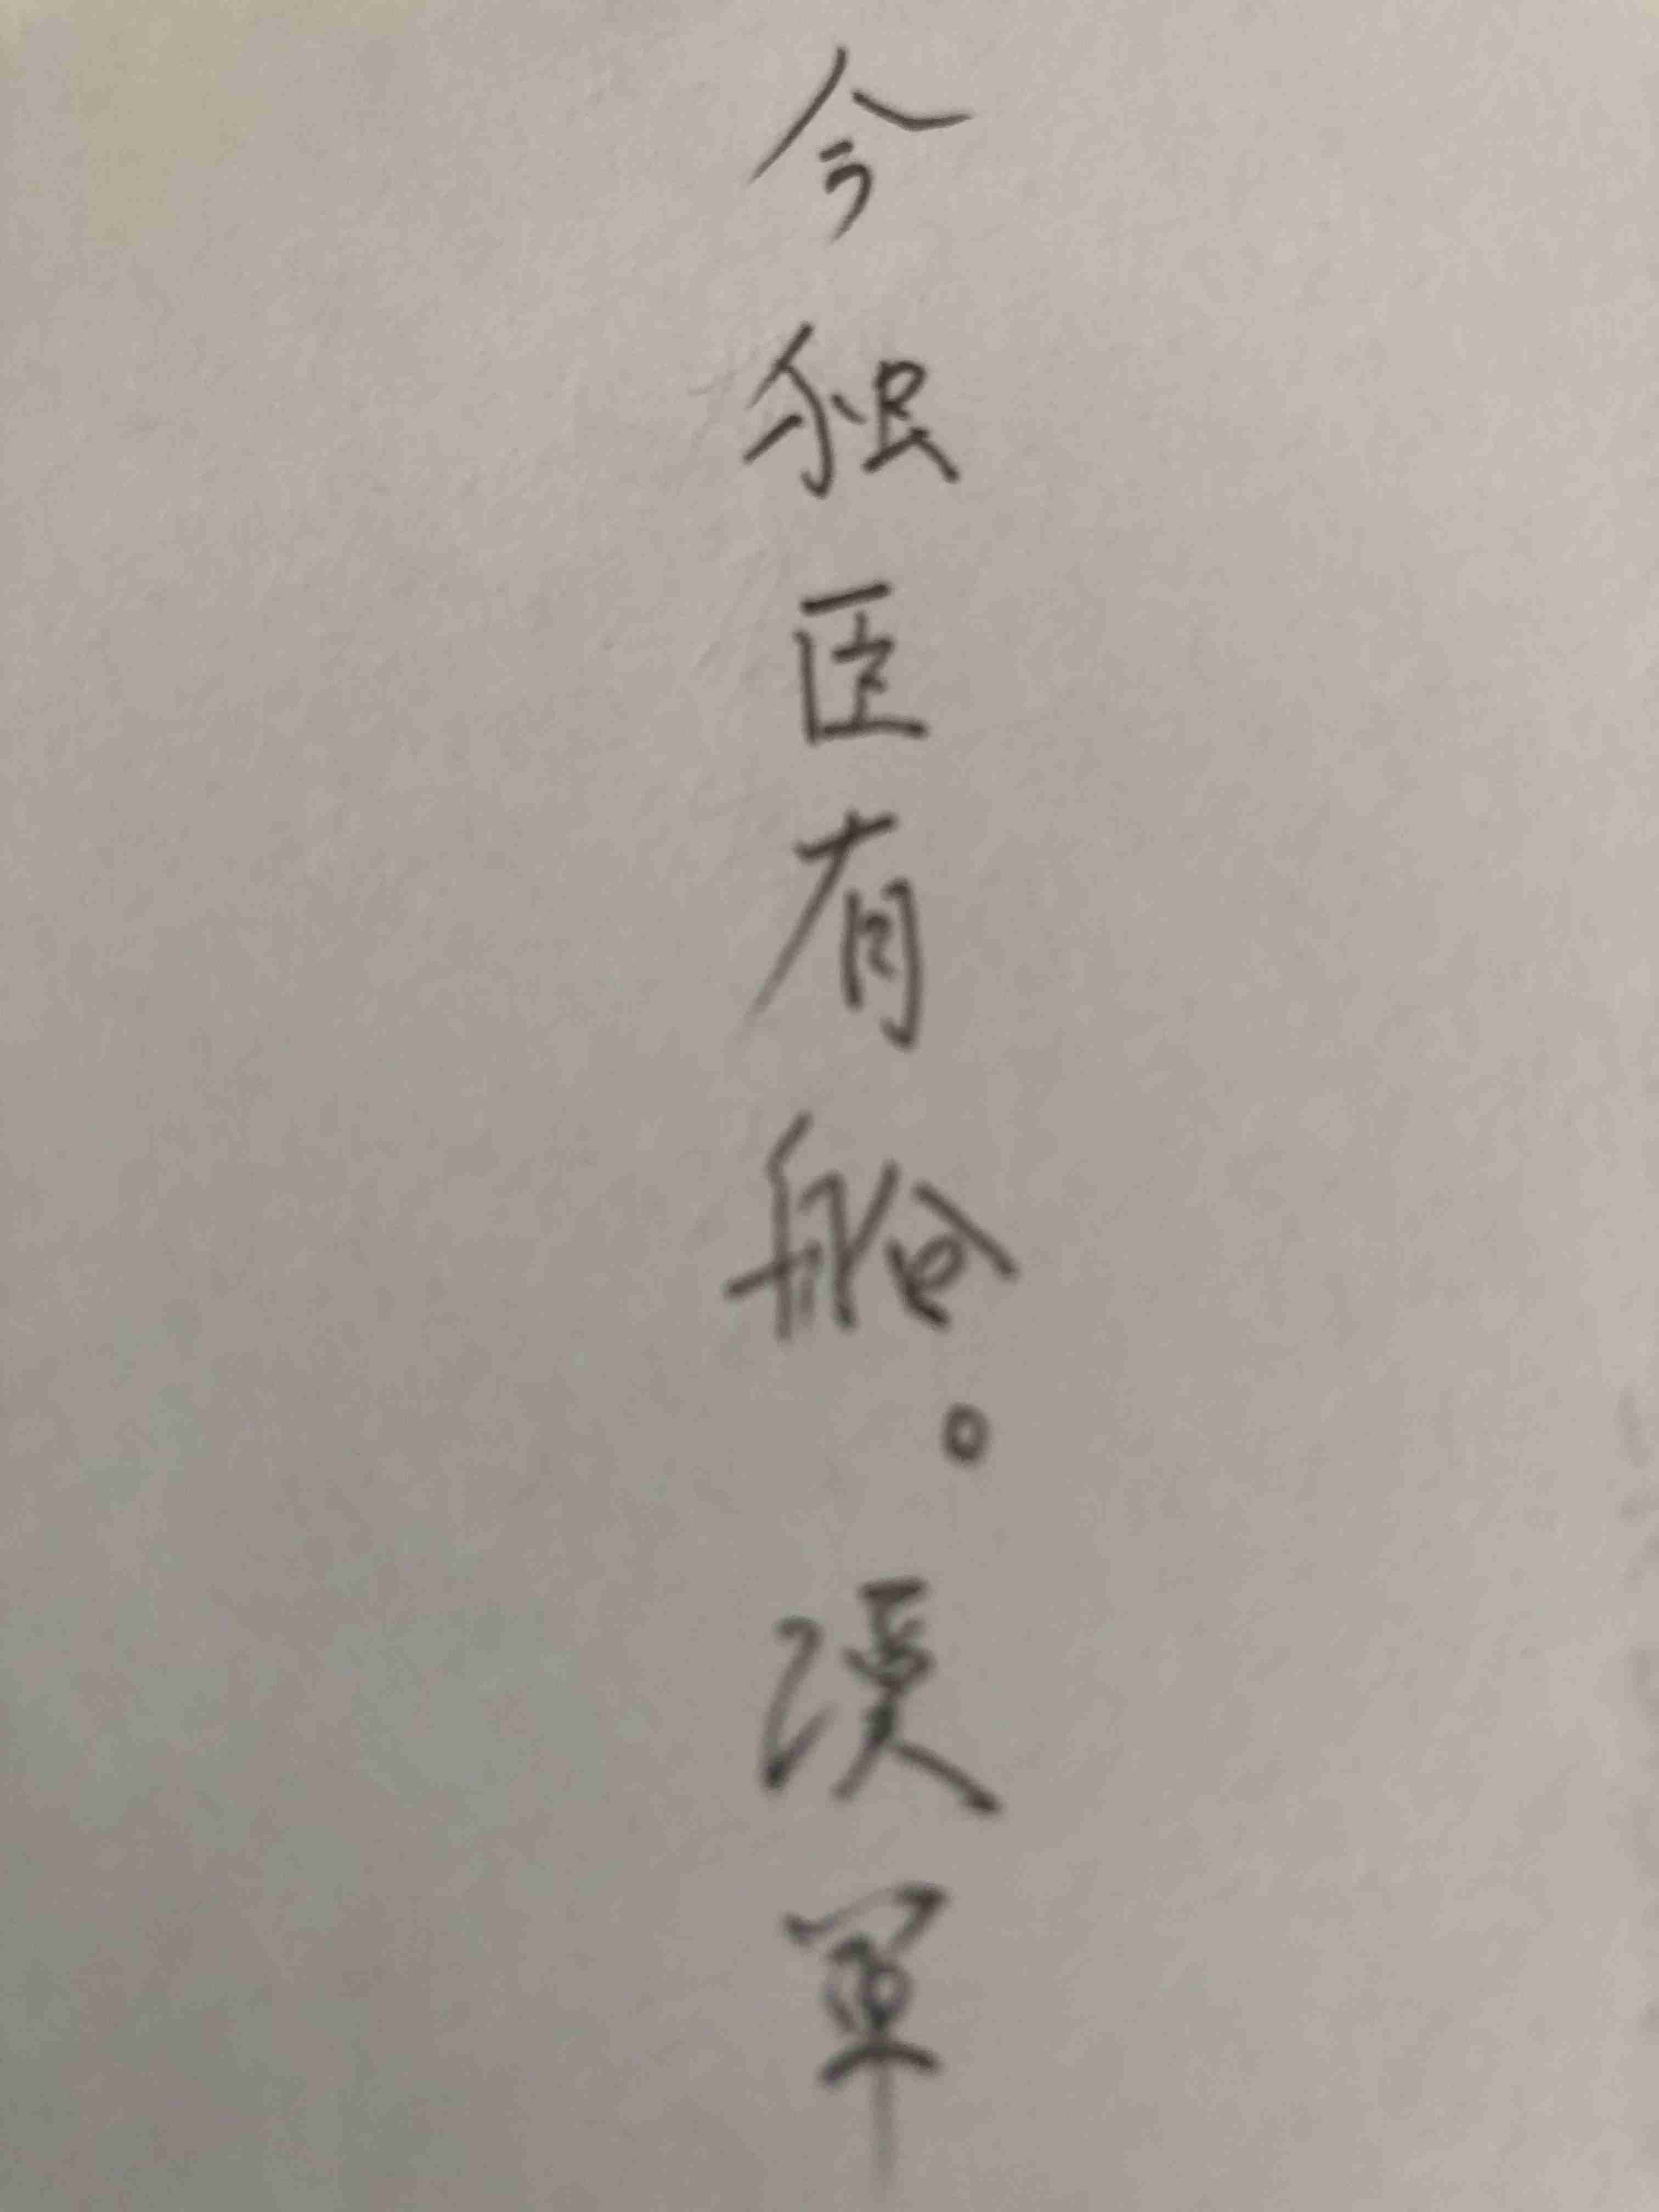 今独臣有船。漢軍